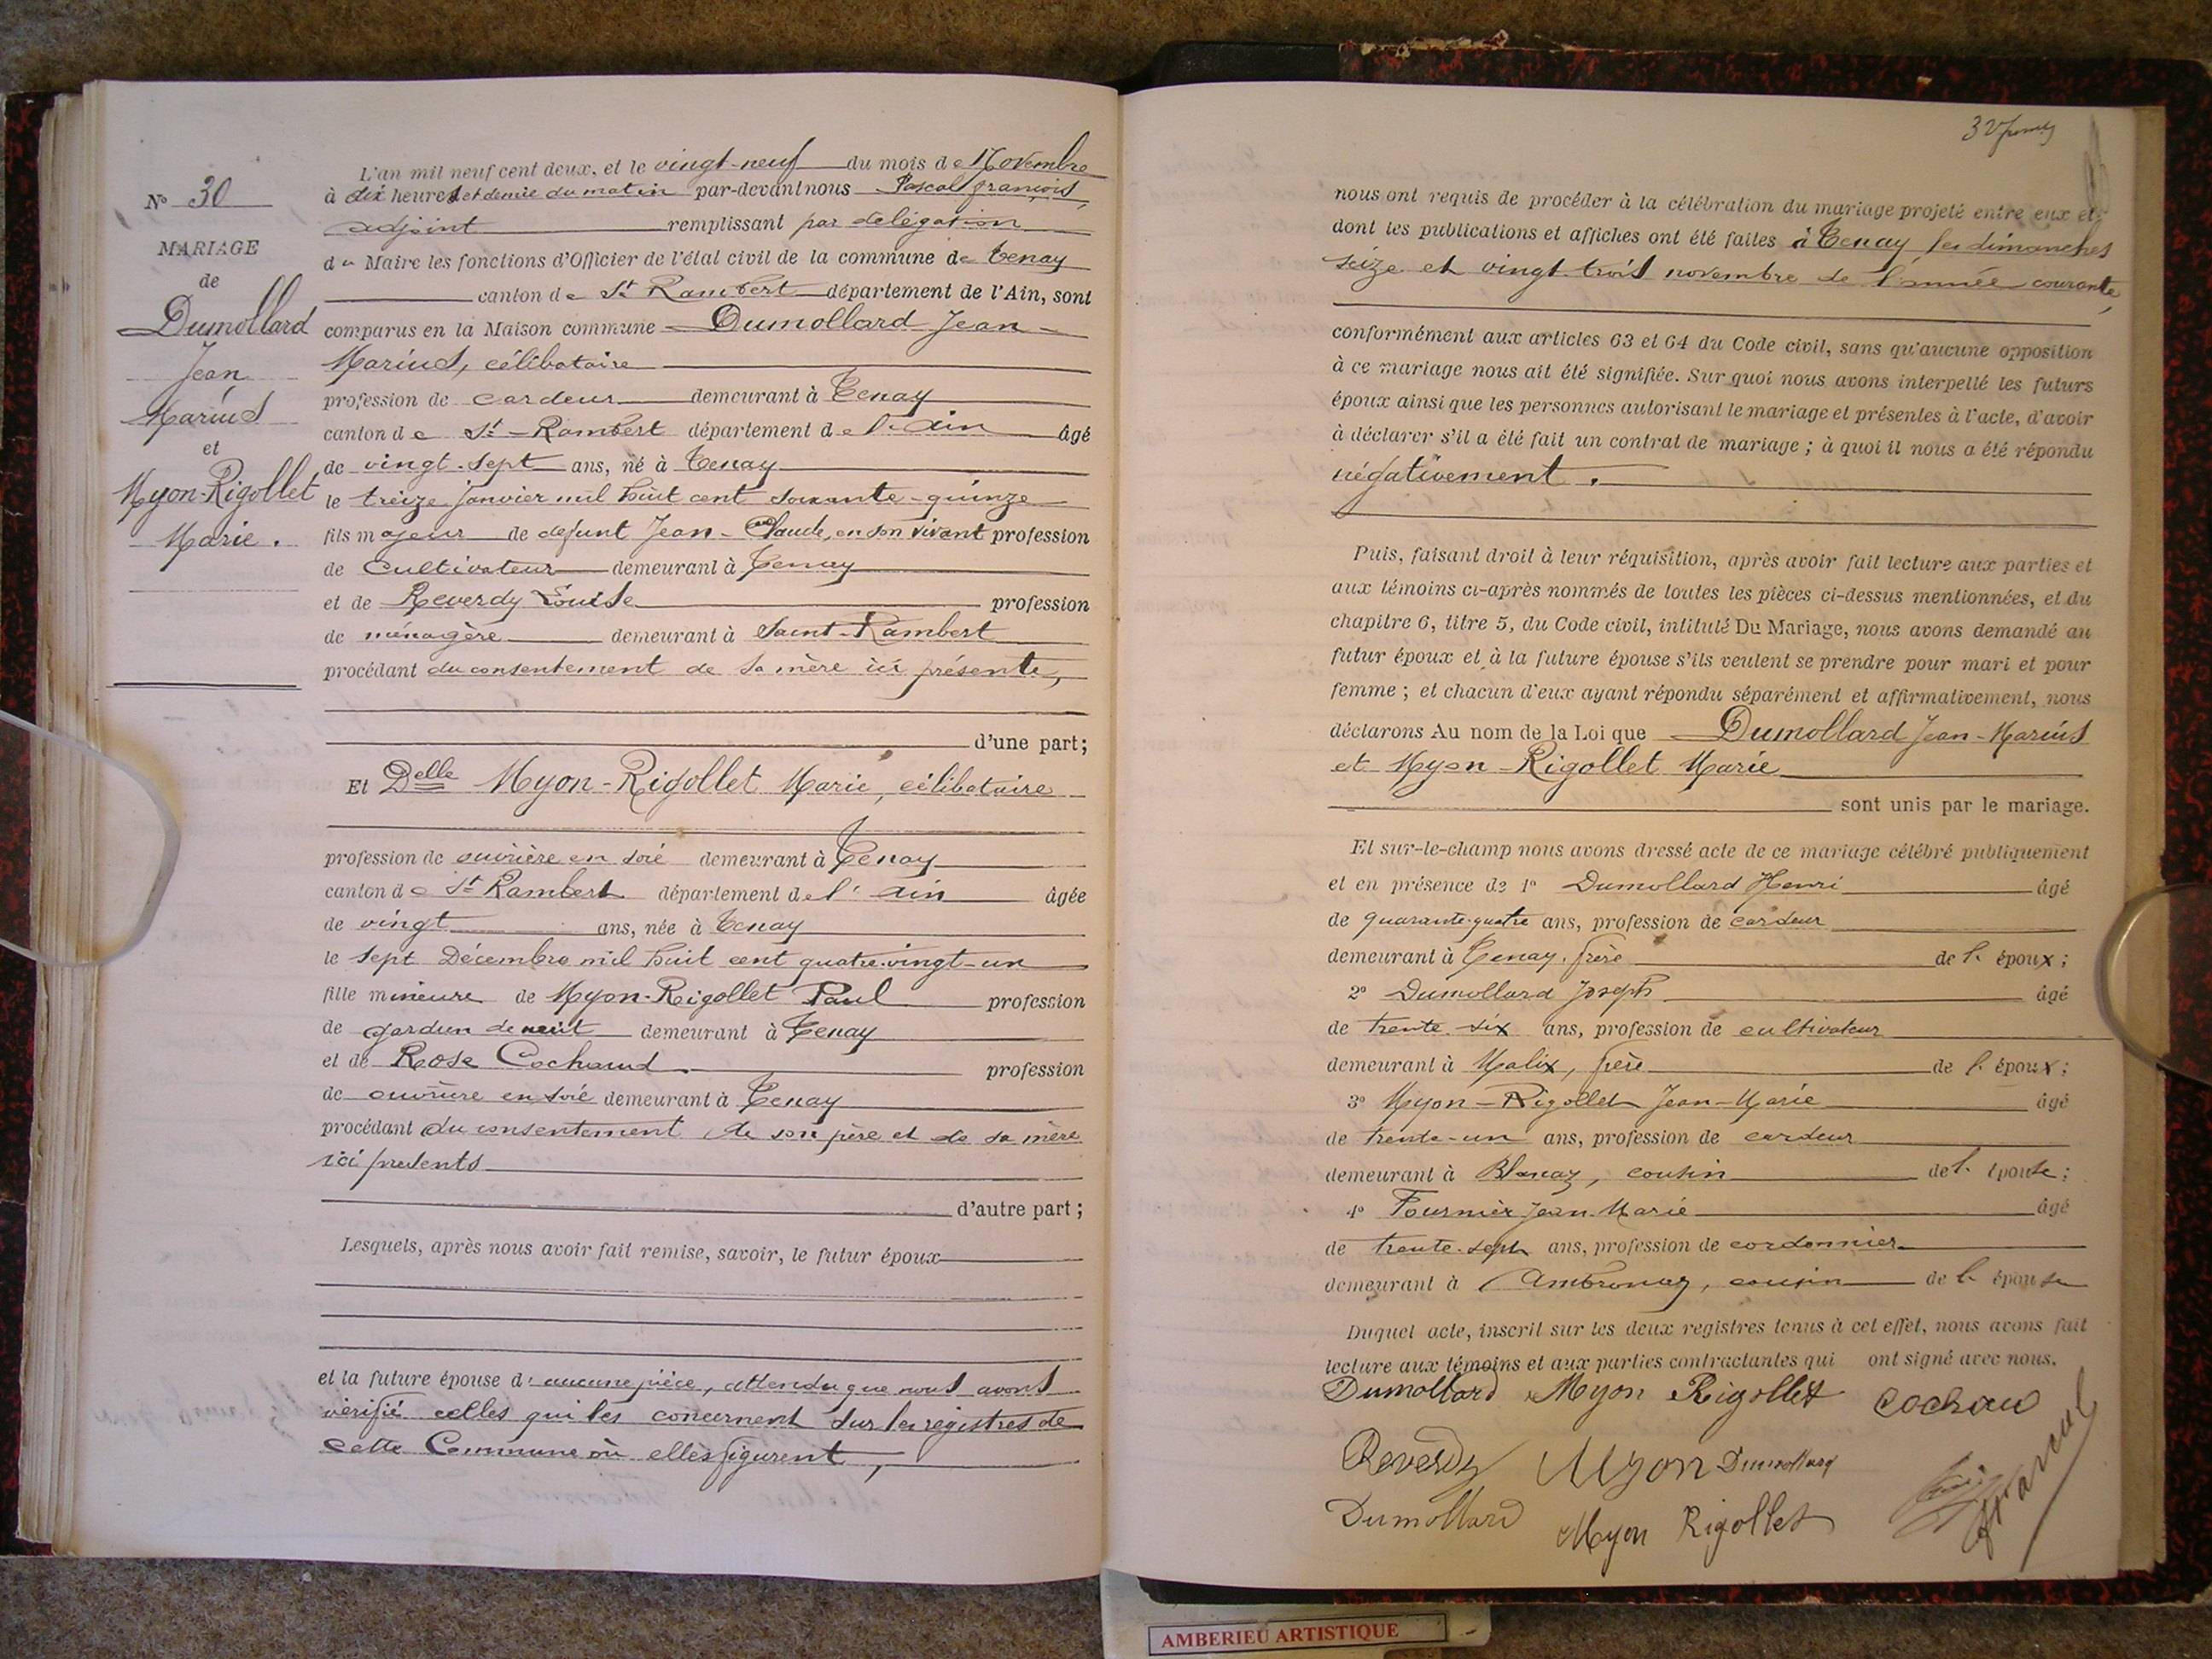 N° 30
MARIAGE
de
Dumollard
Jean
Marius
et
Myon-Rigollet
Marie.
L'an mil neuf cent deux, et le vingt-neuf du mois de Novembre
à dix heures et demie du matin par-devant nous Pascal françois,
adjoint remplissant par délégation
du Maire les fonctions d'Officier de l'état civil de la commune de Tenay
canton de St Rambert département de l'Ain, sont
comparus en la Maison commune Dumollard Jean-
Marius, célibataire
profession de cardeur demeurant à Tenay
canton de St-Rambert département de l'Ain âgé
de vingt-sept ans, né à Tenay
le treize janvier mil huit cent soixante-quinze
fils majeur de défunt Jean-Claude, en son vivant profession
de cultivateur demeurant à Tenay
et de Reverdy Louise profession
de ménagère demeurant à Saint-Rambert
procédant du consentement de sa mère ici présente,
d'une part;
Et Delle Myon-Rigollet Marie, célibataire
profession de ouvrière en soie demeurant à Tenay
canton de St Rambert département de l'Ain âgée
de vingt ans, née à Tenay
le sept Décembre mil huit cent quatre-vingt-un
fille mineure de Myon-Rigollet Paul profession
de gardien de nuit demeurant à Tenay
et de Rose Cochaud profession
de ouvrière en soie demeurant à Tenay
procédant du consentement de son père et de sa mère
ici présents
d'autre part;
Lesquels, après nous avoir fait remise, savoir, le futur époux
et la future épouse d'aucune pièce, attendu que nous avons
vérifié celles qui les concernent sur les registres de
cette Commune où elles figurent,
nous ont requis de procéder à la célébration du mariage projeté entre eux et
dont les publications et affiches ont été faites à Tenay les dimanches
seize et vingt-trois novembre de l'année courante,
conformément aux articles 63 et 64 du Code civil, sans qu'aucune opposition
à ce mariage nous ait été signifiée. Sur quoi nous avons interpellé les futurs
époux ainsi que les personnes autorisant le mariage et présentes à l'acte, d'avoir
à déclarer s'il a été fait un contrat de mariage; à quoi il nous a été répondu
négativement.
Puis, faisant droit à leur réquisition, après avoir fait lecture aux parties et
aux témoins ci-après nommés de toutes les pièces ci-dessus mentionnées, et du
chapitre 6, titre 5, du Code civil, intitulé Du Mariage, nous avons demandé au
futur époux et à la future épouse s'ils veulent se prendre pour mari et pour
femme; et chacun d'eux ayant répondu séparément et affirmativement, nous
déclarons Au nom de la Loi que Dumollard Jean-Marius
et Myon-Rigollet Marie
sont unis par le mariage.
Et sur-le-champ nous avons dressé acte de ce mariage célébré publiquement
et en présence de 1° Dumollard Henri âgé
de quarante-quatre ans, profession de cardeur
demeurant à Tenay, frère de l'époux;
2° Dumollard Joseph âgé
de trente-six ans, profession de cultivateur
demeurant à Malix, frère de l'époux;
3° Myon-Rigollet Jean-Marie âgé
de trente-un ans, profession de cardeur
demeurant à Blanaz, cousin de l'épouse;
4° Fournier Jean-Marie âgé
de trente-sept ans, profession de cordonnier
demeurant à Ambronay, cousin de l'épouse
Duquel acte, inscrit sur les deux registres tenus à cet effet, nous avons fait
lecture aux témoins et aux parties contractantes qui ont signé avec nous.
Dumollard Myon Rigollet Cochaud
Reverdy Myon Dumollard
Dumollard Myon Rigollet
AMBERIEU ARTISTIQUE